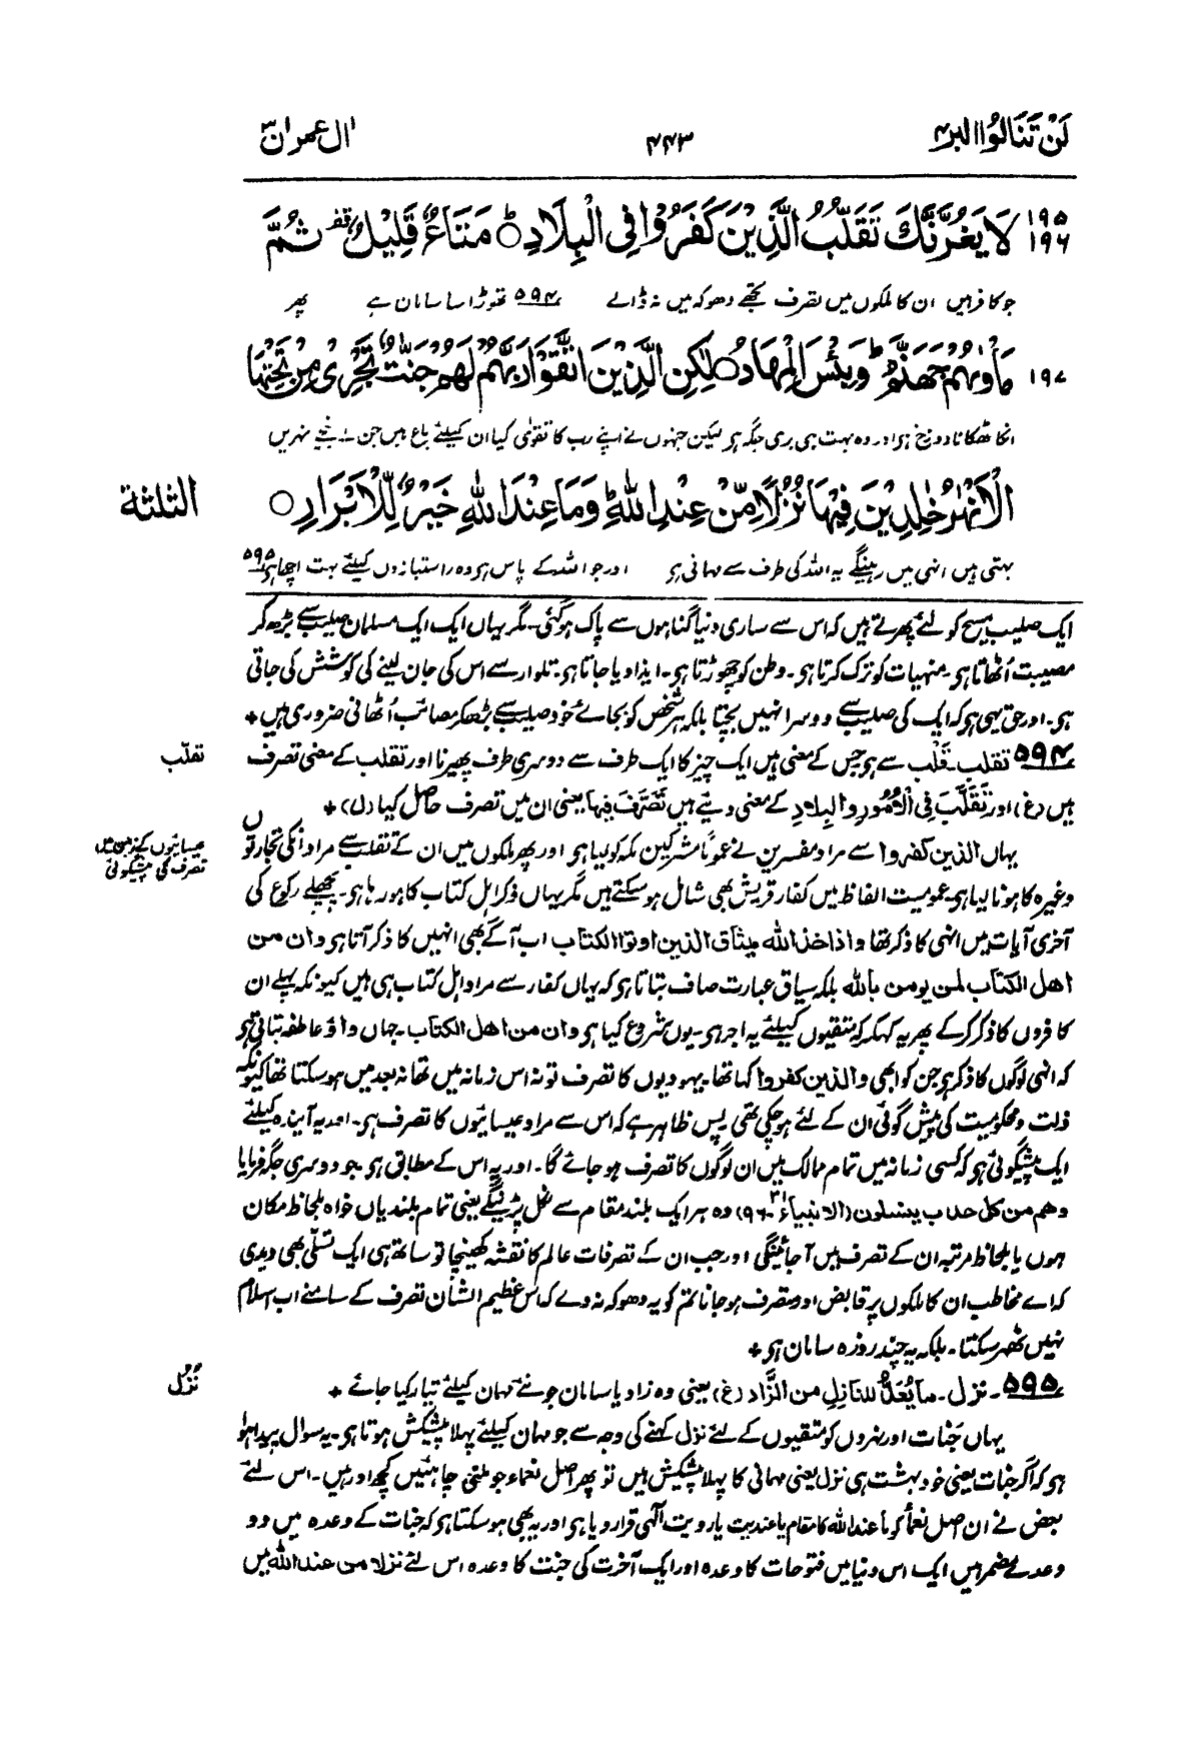 لَنْ تَنَالُوا الْبِرَّ ۴
۴۴۳
اٰل عمرٰن ۳
۱۹۵ ۱۹۶ لَا يَغُرَّنَّكَ تَقَلُّبُ الَّذِيْنَ كَفَرُوْا فِى الْبِلَادِ ۝ؕ مَتَاعٌ قَلِيْلٌ قف ثُمَّ
جو کافر ہیں ان کا ملکوں میں تصرف تجھے دھوکہ میں نہ ڈالے ۵۹۴ تھوڑا سا سامان ہے پھر
۱۹۷ مَاْوٰىهُمْ جَهَنَّمُ ؕ وَبِئْسَ الْمِهَادُ ۝ لٰكِنِ الَّذِيْنَ اتَّقَوْا رَبَّهُمْ لَهُمْ جَنّٰتٌ تَجْرِىْ مِنْ تَحْتِهَا
انکا ٹھکانا دوزخ ہو اور وہ بہت ہی بری جگہ ہو لیکن جنہوں نے اپنے رب کا تقویٰ کیا ان کیلئے باغ ہیں جن کے نیچے نہریں
الْاَنْهٰرُ خٰلِدِيْنَ فِيْهَا نُزُلًا مِّنْ عِنْدِ اللّٰهِ ؕ وَمَا عِنْدَ اللّٰهِ خَيْرٌ لِّلْاَبْرَارِ ۝
الثلثة
بہتی ہیں انہی میں رہینگے یہ اللہ کی طرف سے مہمانی ہو اور جو اللہ کے پاس ہو وہ راستبازوں کیلئے بہت اچھا ہو ۵۹۵
ایک صلیب مسیح کو لئے پھرتے ہیں کہ اس سے ساری دنیا گناہوں سے پاک ہو گئی۔ مگر یہاں ایک ایک مسلمان صلیب سے بڑھ کر
مصیبت اُٹھاتا ہو۔ منہیات کو ترک کرتا ہو۔ وطن کو چھوڑتا ہو۔ ایذا دیا جاتا ہو۔ تلوار سے اس کی جان لینے کی کوشش کی جاتی
ہو۔ اور حق یہی ہو کہ ایک کی صلیب سے دوسرا نہیں بچتا بلکہ ہر شخص کو بجائے خود صلیب سے بڑھکر مصائب اُٹھانی ضروری ہیں +
۵۹۴ تقلب۔ قَلْب سے ہو جس کے معنی ہیں ایک چیز کا ایک طرف سے دوسری طرف پھیرنا اور تقلب کے معنی تصرف
تقلّب
ہیں (غ) اور تَقَلَّبَ فِي الْاُمُوْرِ وَالْبِلَادِ کے معنی دیئے ہیں تَصَرَّفَ فِيهَا یعنی ان میں تصرف حاصل کیا (ل) +
یہاں الذین کفروا سے مراد مفسرین نے عموماً مشرکین مکہ کو لیا ہو اور پھر ملکوں میں ان کے تقلب سے مراد انکی تجارتوں
عیسائیوں کے زمین میں
تصرف کی پیشگوئی
وغیرہ کا ہونا لیا ہو۔ عمومیت الفاظ میں کفار قریش بھی شامل ہو سکتے ہیں مگر یہاں ذکر اہل کتاب کا ہو رہا ہو۔ پچھلے رکوع کی
آخری آیات میں انہی کا ذکر تھا واذاخذ الله میثاق الذین اوتوا الکتاب اب آگے بھی انہیں کا ذکر آتا ہو وان من
اهل الکتاب لمن یومن بالله بلکہ سیاق عبارت صاف بتاتا ہو کہ یہاں کفار سے مراد اہل کتاب ہی ہیں کیونکہ پہلے ان
کافروں کا ذکر کرکے پھر یہ کہکر کہ متقیوں کیلئے یہ اجر ہو۔ یوں شروع کیا ہو وان من اهل الکتاب۔ جہاں واؤ عاطفہ بتاتی ہو
کہ انہی لوگوں کا ذکر ہو جن کو ابھی والذین کفروا کہا تھا۔ یہودیوں کا تصرف تو نہ اس زمانہ میں تھا نہ بعد میں ہو سکتا تھا کیونکہ
ذلت و محکومیت کی پیش گوئی ان کے لئے ہو چکی تھی پس ظاہر ہے کہ اس سے مراد عیسائیوں کا تصرف ہو۔ اور یہ آیندہ کیلئے
ایک پیشگوئی ہو کہ کسی زمانہ میں تمام ممالک میں ان لوگوں کا تصرف ہو جائے گا۔ اور یہ اس کے مطابق ہو جو دوسری جگہ فرمایا
وهم من کل حدب ینسلون (الانبیاء ۲۱۔ ۹۶) وہ ہر ایک بلند مقام سے نکل پڑینگے یعنی تمام بلندیاں خواہ بلحاظ مکان
ہوں یا بلحاظ مرتبہ ان کے تصرف میں آجائینگی اور جب ان کے تصرفات عالم کا نقشہ کھینچا تو ساتھ ہی ایک تسلّی بھی دیدی
کہ اے مخاطب ان کا ملکوں پر قابض اور متصرف ہو جانا تم کو یہ دھوکہ نہ دے کہ اس عظیم الشان تصرف کے سامنے اب اسلام
نہیں ٹھہر سکتا۔ بلکہ یہ چند روزہ سامان ہو +
۵۹۵۔ نزل۔ مَا يُعَدُّ للنازِلِ من الزَّادِ (غ) یعنی وہ زاد یا سامان جو نئے مہمان کیلئے تیار کیا جائے +
نُزُل
یہاں جنات اور نہروں کو متقیوں کے لئے نزل کہنے کی وجہ سے جو مہمان کیلئے پہلا پیشکش ہوتا ہو۔ یہ سوال پیدا ہوا
ہو کہ اگر جنات یعنی خود بہشت ہی نزل یعنی مہمانی کا پہلا پیشکش ہیں تو پھر اصل نعماء جو ملنی چاہئیں کچھ اور ہیں۔ اس لئے
بعض نے ان اصل نعماء کو ما عند الله کا مقام یا عندیت یا رویت الٰہی قرار دیا ہو اور یہ بھی ہو سکتا ہو کہ جنات کے وعدہ میں دو
وعدے مضمر ہیں ایک اس دنیا میں فتوحات کا وعدہ اور ایک آخرت کی جنت کا وعدہ اس لئے نزلا من عند الله میں